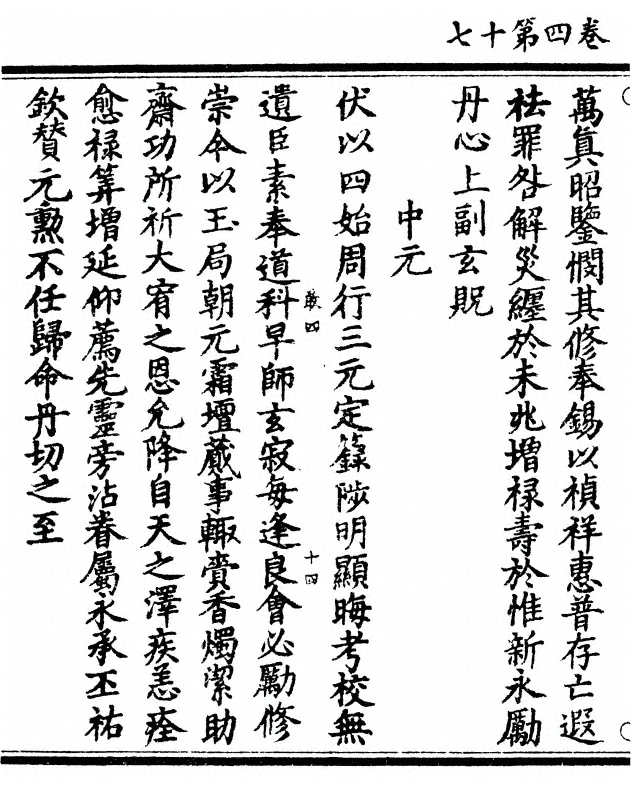 七十第四卷
萬真昭鑒憫其修奉錫以禎祥惠普存亡遐
祛罪咎解災纏於未兆增祿壽於惟新永勵
丹心上副玄貺
中元
伏以四始周行三元定籙陟明顯晦考校無
遺臣素奉道科早師玄寂每逢良會必勵修
崇今以玉局朝元霜壇蕆事輙賫香燭潔助
齋功所祈大宥之恩允降自天之澤疾恙痊
愈祿筭增延仰薦先靈旁沾眷屬永承丕祐
欽贊元勳不任歸命丹切之至
十四